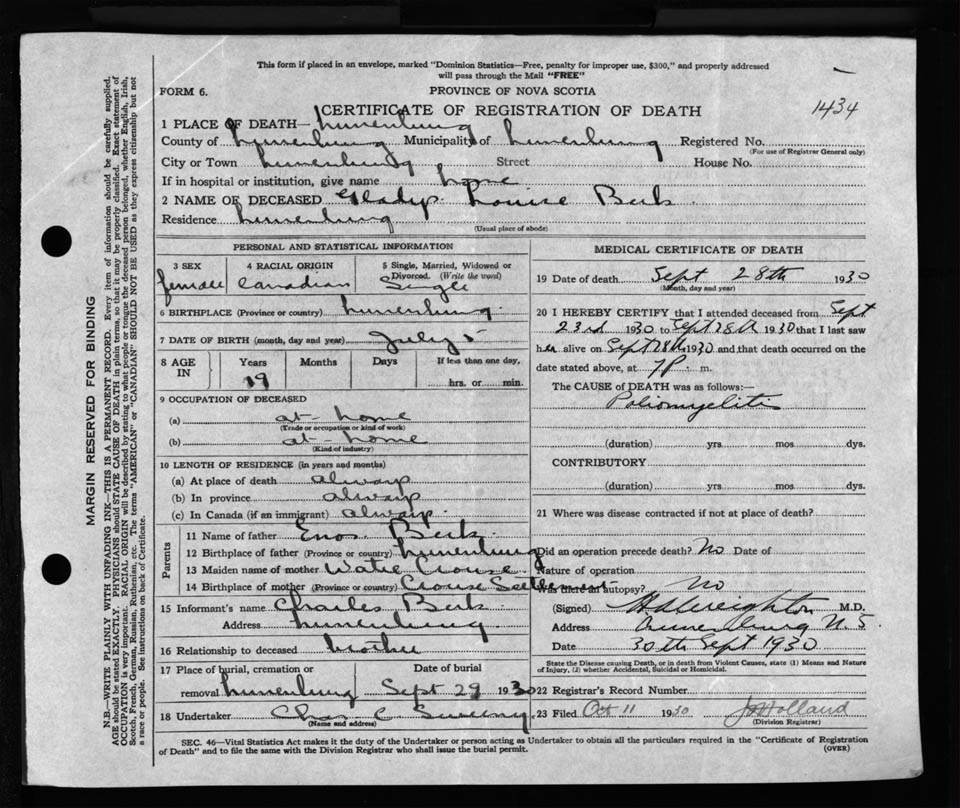 This form if placed in an envelope, marked "Dominion Statistics—Free, penalty for improper use, $300," and properly addressed
will pass through the Mail "FREE"
FORM 6.
PROVINCE OF NOVA SCOTIA
CERTIFICATE OF REGISTRATION OF DEATH
1434
1 PLACE OF DEATH— Lunenburg
County of Lunenburg Municipality of Lunenburg Registered No.
(For use of Registrar General only)
City or Town Lunenburg Street House No.
If in hospital or institution, give name home
2 NAME OF DECEASED Gladys Louise Beck
Residence Lunenburg
(Usual place of abode)
PERSONAL AND STATISTICAL INFORMATION
3 SEX 4 RACIAL ORIGIN 5 Single, Married, Widowed or
Divorced. (Write the word)
female Canadian Single
6 BIRTHPLACE (Province or country) Lunenburg
7 DATE OF BIRTH (month, day and year) July 5
8 AGE IN Years Months Days If less than one day,
19 hrs. or min.
9 OCCUPATION OF DECEASED
(a) at-home
(Trade or occupation or kind of work)
(b) at-home
(Kind of industry)
10 LENGTH OF RESIDENCE (in years and months)
(a) At place of death always
(b) In province always
(c) In Canada (if an immigrant) always
Parents
11 Name of father Enos Beck
12 Birthplace of father (Province or country) Lunenburg
13 Maiden name of mother Crouse
14 Birthplace of mother (Province or country) Crouse Settlement
15 Informant's name Charles Beck
Address Lunenburg
16 Relationship to deceased brother
17 Place of burial, cremation or Date of burial
removal Lunenburg Sept 29 1930
18 Undertaker Chas C Sweeny
(Name and address)
MEDICAL CERTIFICATE OF DEATH
19 Date of death Sept 28th 1930
(Month, day and year)
20 I HEREBY CERTIFY that I attended deceased from Sept
23rd 1930 to Sept 28th 1930 that I last saw
her alive on Sept 28th 1930 and that death occurred on the
date stated above, at 7 P. m.
The CAUSE of DEATH was as follows:—
Poliomyelitis
(duration) yrs. mos dys.
CONTRIBUTORY
(duration) yrs. mos. dys.
21 Where was disease contracted if not at place of death?
Did an operation precede death? No Date of
Nature of operation
Was there an autopsy? No
(Signed) H A Creighton M.D.
Address Lunenburg N.S.
Date 30th Sept 1930
State the Disease causing Death, or in death from Violent Causes, state (1) Means and Nature
of Injury, (2) whether Accidental, Suicidal or Homicidal.
22 Registrar's Record Number
23 Filed Oct 11 1930 Holland
(Division Registrar)
SEC. 46—Vital Statistics Act makes it the duty of the Undertaker or person acting as Undertaker to obtain all the particulars required in the "Certificate of Registration
of Death" and to file the same with the Division Registrar who shall issue the burial permit.
(OVER)
MARGIN RESERVED FOR BINDING
N.B.—WRITE PLAINLY WITH UNFADING INK—THIS IS A PERMANENT RECORD. Every item of information should be carefully supplied.
AGE should be stated EXACTLY. PHYSICIANS should STATE CAUSE OF DEATH in plain terms, so that it may be properly classified. Exact statement of
OCCUPATION is very important. RACIAL ORIGIN will be described by stating to what people or tongue the deceased person belonged, whether English, Irish,
Scotch, French, German, Russian, Ruthenian, etc. The terms "AMERICAN" or "CANADIAN" SHOULD NOT BE USED as they express citizenship but not
a race or people. See instructions on back of Certificate.